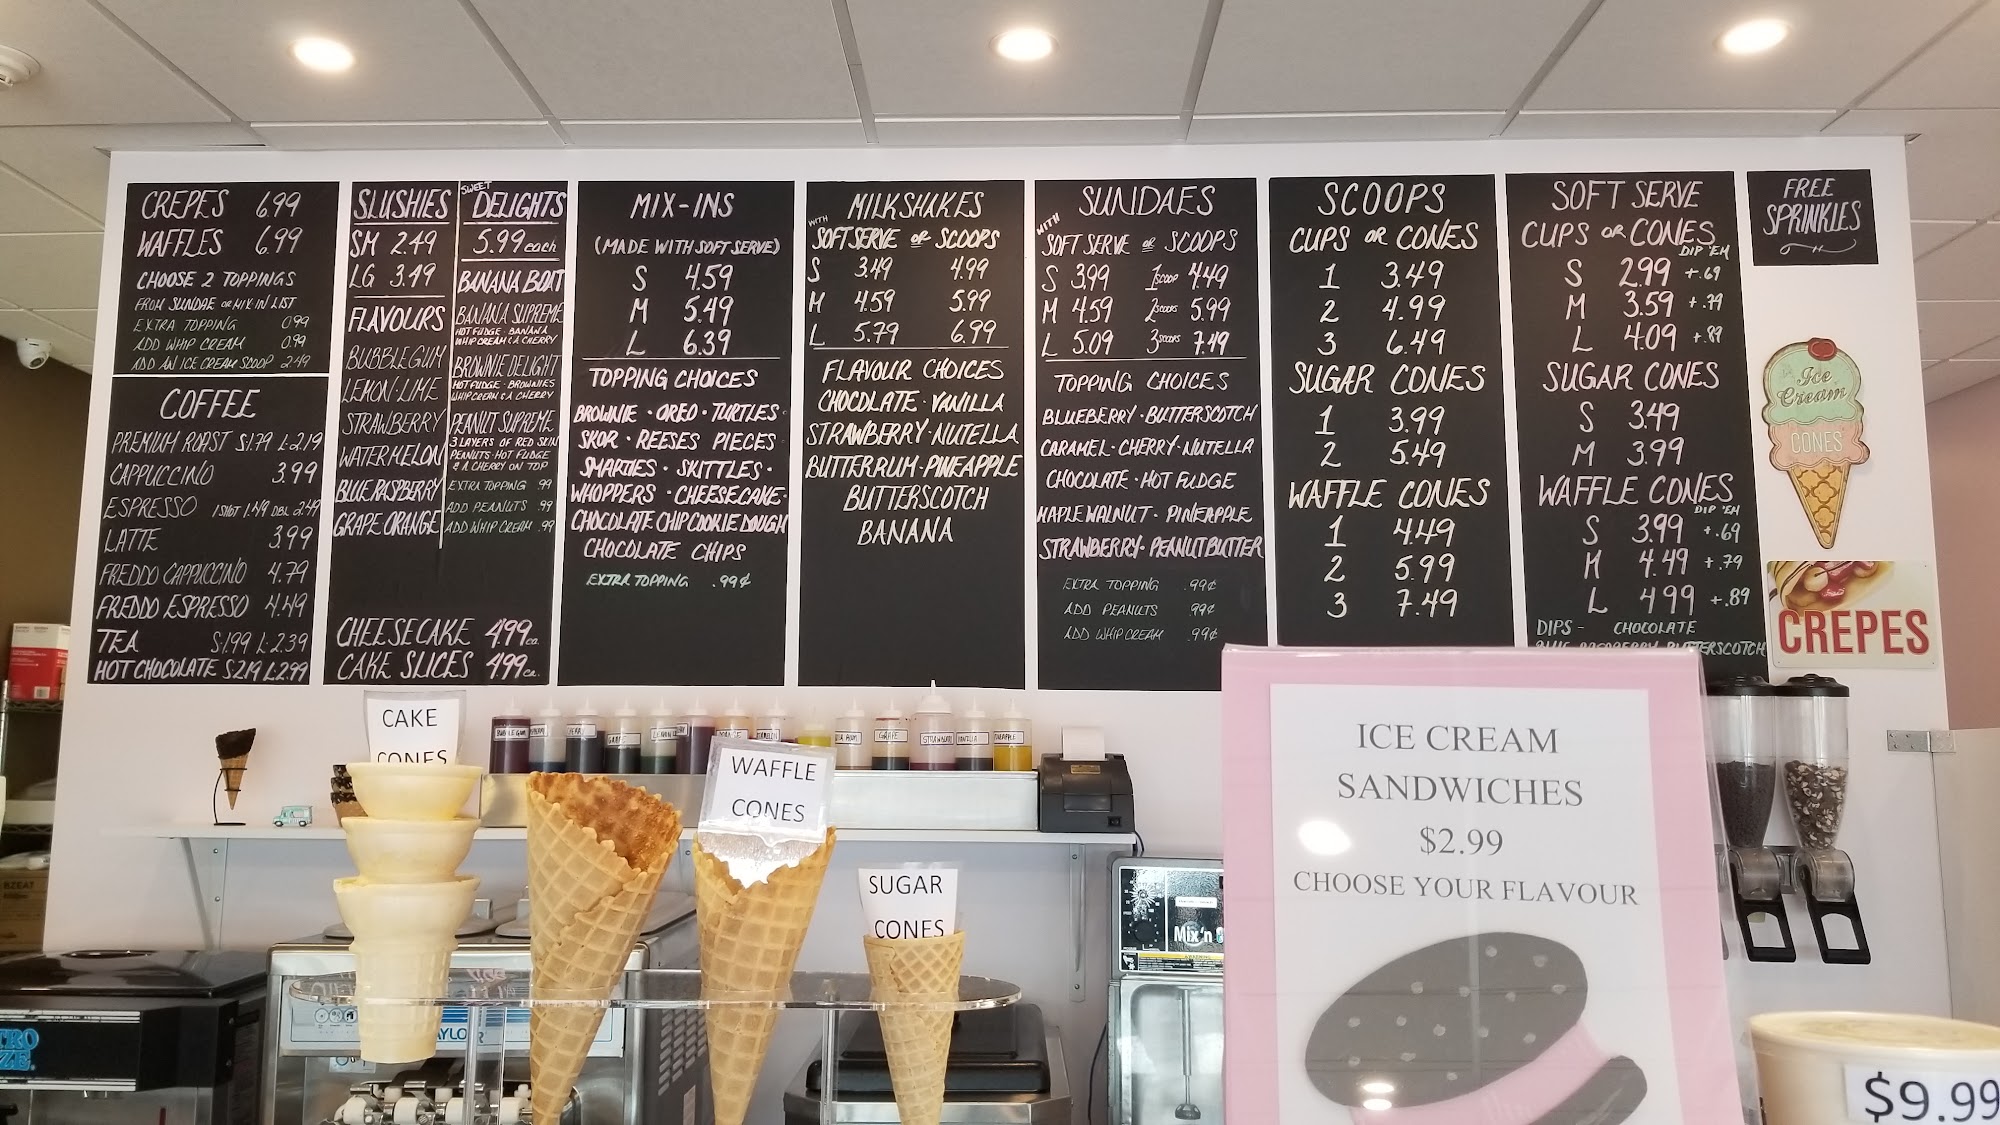 CREPES 6.99
WAFFLES 6.99
CHOOSE 2 TOPPINGS
FROM SUNDAE OR MIX IN LIST
EXTRA TOPPING 0.99
ADD WHIP CREAM 0.99
ADD AN ICE CREAM SCOOP 2.49
COFFEE
PREMIUM ROAST S 1.79 L 2.19
CAPPUCCINO 3.99
ESPRESSO 1 SHOT 1.49 DBL 2.49
LATTE 3.99
FREDDO CAPPUCCINO 4.79
FREDDO ESPRESSO 4.49
TEA S 1.99 L 2.39
HOT CHOCOLATE S 2.19 L 2.99
SLUSHIES
SM 2.49
LG 3.49
FLAVOURS
BUBBLEGUM
LEMON-LIME
STRAWBERRY
WATERMELON
BLUE RASPBERRY
GRAPE ORANGE
SWEET
DELIGHTS
5.99 each
BANANA BOAT
BANANA SUPREME
HOT FUDGE · BANANA
WHIP CREAM & A CHERRY
BROWNIE DELIGHT
HOT FUDGE · BROWNIES
WHIP CREAM & A CHERRY
PEANUT SUPREME
3 LAYERS OF RED SKIN
PEANUTS · HOT FUDGE
& A CHERRY ON TOP
EXTRA TOPPING .99
ADD PEANUTS .99
ADD WHIP CREAM .99
CHEESECAKE 4.99 ea.
CAKE SLICES 4.99 ea.
MIX-INS
(MADE WITH SOFT SERVE)
S 4.59
M 5.49
L 6.39
TOPPING CHOICES
BROWNIE · OREO · TURTLES ·
SKOR · REESES PIECES
SMARTIES · SKITTLES ·
WHOPPERS · CHEESECAKE ·
CHOCOLATE CHIP COOKIE DOUGH
CHOCOLATE CHIPS
EXTRA TOPPING .99¢
MILKSHAKES
WITH
SOFT SERVE or SCOOPS
S 3.49 4.99
M 4.59 5.99
L 5.79 6.99
FLAVOUR CHOICES
CHOCOLATE · VANILLA
STRAWBERRY · NUTELLA
BUTTER RUM · PINEAPPLE
BUTTERSCOTCH
BANANA
SUNDAES
WITH
SOFT SERVE or SCOOPS
S 3.99 1 SCOOP 4.49
M 4.59 2 SCOOPS 5.99
L 5.09 3 SCOOPS 7.49
TOPPING CHOICES
BLUEBERRY · BUTTERSCOTCH
CARAMEL · CHERRY · NUTELLA
CHOCOLATE · HOT FUDGE
MAPLE WALNUT · PINEAPPLE
STRAWBERRY · PEANUT BUTTER
EXTRA TOPPING .99¢
ADD PEANUTS .99¢
ADD WHIP CREAM .99¢
SCOOPS
CUPS OR CONES
1 3.49
2 4.99
3 6.49
SUGAR CONES
1 3.99
2 5.49
WAFFLE CONES
1 4.49
2 5.99
3 7.49
SOFT SERVE
CUPS OR CONES
DIP 'EM
S 2.99 +.69
M 3.59 +.79
L 4.09 +.89
SUGAR CONES
S 3.49
M 3.99
WAFFLE CONES
DIP 'EM
S 3.99 +.69
M 4.49 +.79
L 4.99 +.89
DIPS - CHOCOLATE
BLUE RASPBERRY BUTTERSCOTCH
FREE
SPRINKLES
Ice
Cream
CONES
CREPES
CAKE
CONES
WAFFLE
CONES
SUGAR
CONES
BUBBLE GUM
CHERRY
GRAPE
STRAWBERRY
VANILLA
ICE CREAM
SANDWICHES
$2.99
CHOOSE YOUR FLAVOUR
Mix'n
$9.99